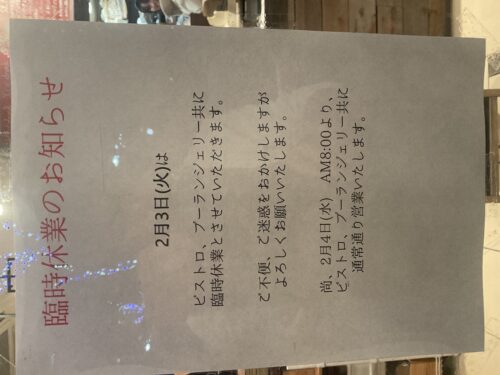 臨時休業のお知らせ
2月3日(火)は
ビストロ、ブーランジェリー共に
臨時休業とさせていただきます。
ご不便、ご迷惑をおかけしますが
よろしくお願いいたします。
尚、2月4日(水) AM8:00より、
ビストロ、ブーランジェリー共に
通常通り営業いたします。